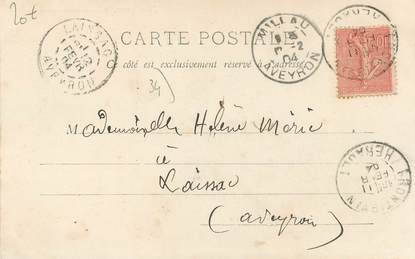 20t
LAISSAC
12
FEVR
04
AVEYRON
CARTE POSTALE
Ce côté est exclusivement réservé à l'adresse.
MILLAU
-2
04
AVEYRON
34)
Mademoiselle Hélène Marie
à
Laissac
(aveyron)
FRONTIGNAN
11
FEVR
04
HERAULT